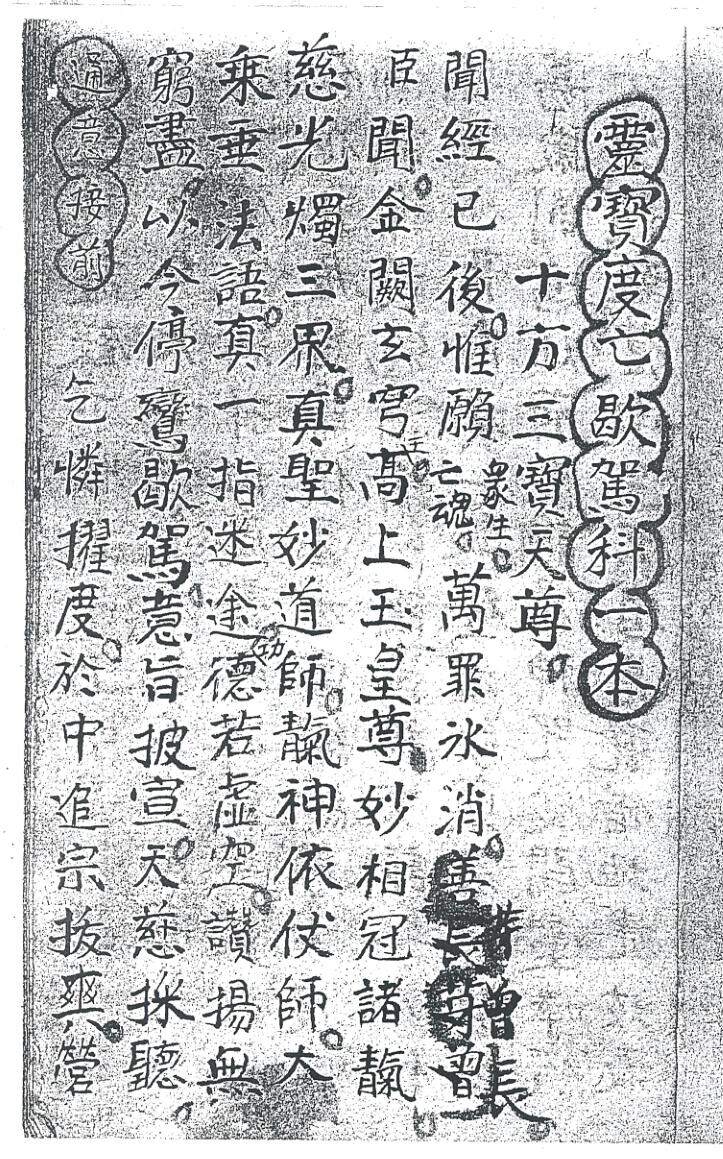 靈寶度亡歇駕科一本
十方三寶天尊
聞經已後惟願衆生亡魂萬罪氷消善長
臣聞金闕玄穹高上玉皇尊妙相冠諸靝
慈光燭三界真聖妙道師靝神依伏師大
乗垂法語真一指迷途功德若虛空讚揚無
窮盡以今停鸞歇駕意旨披宣天慈採聽
通意接前 乞憐擢度於中追宗拔爽營